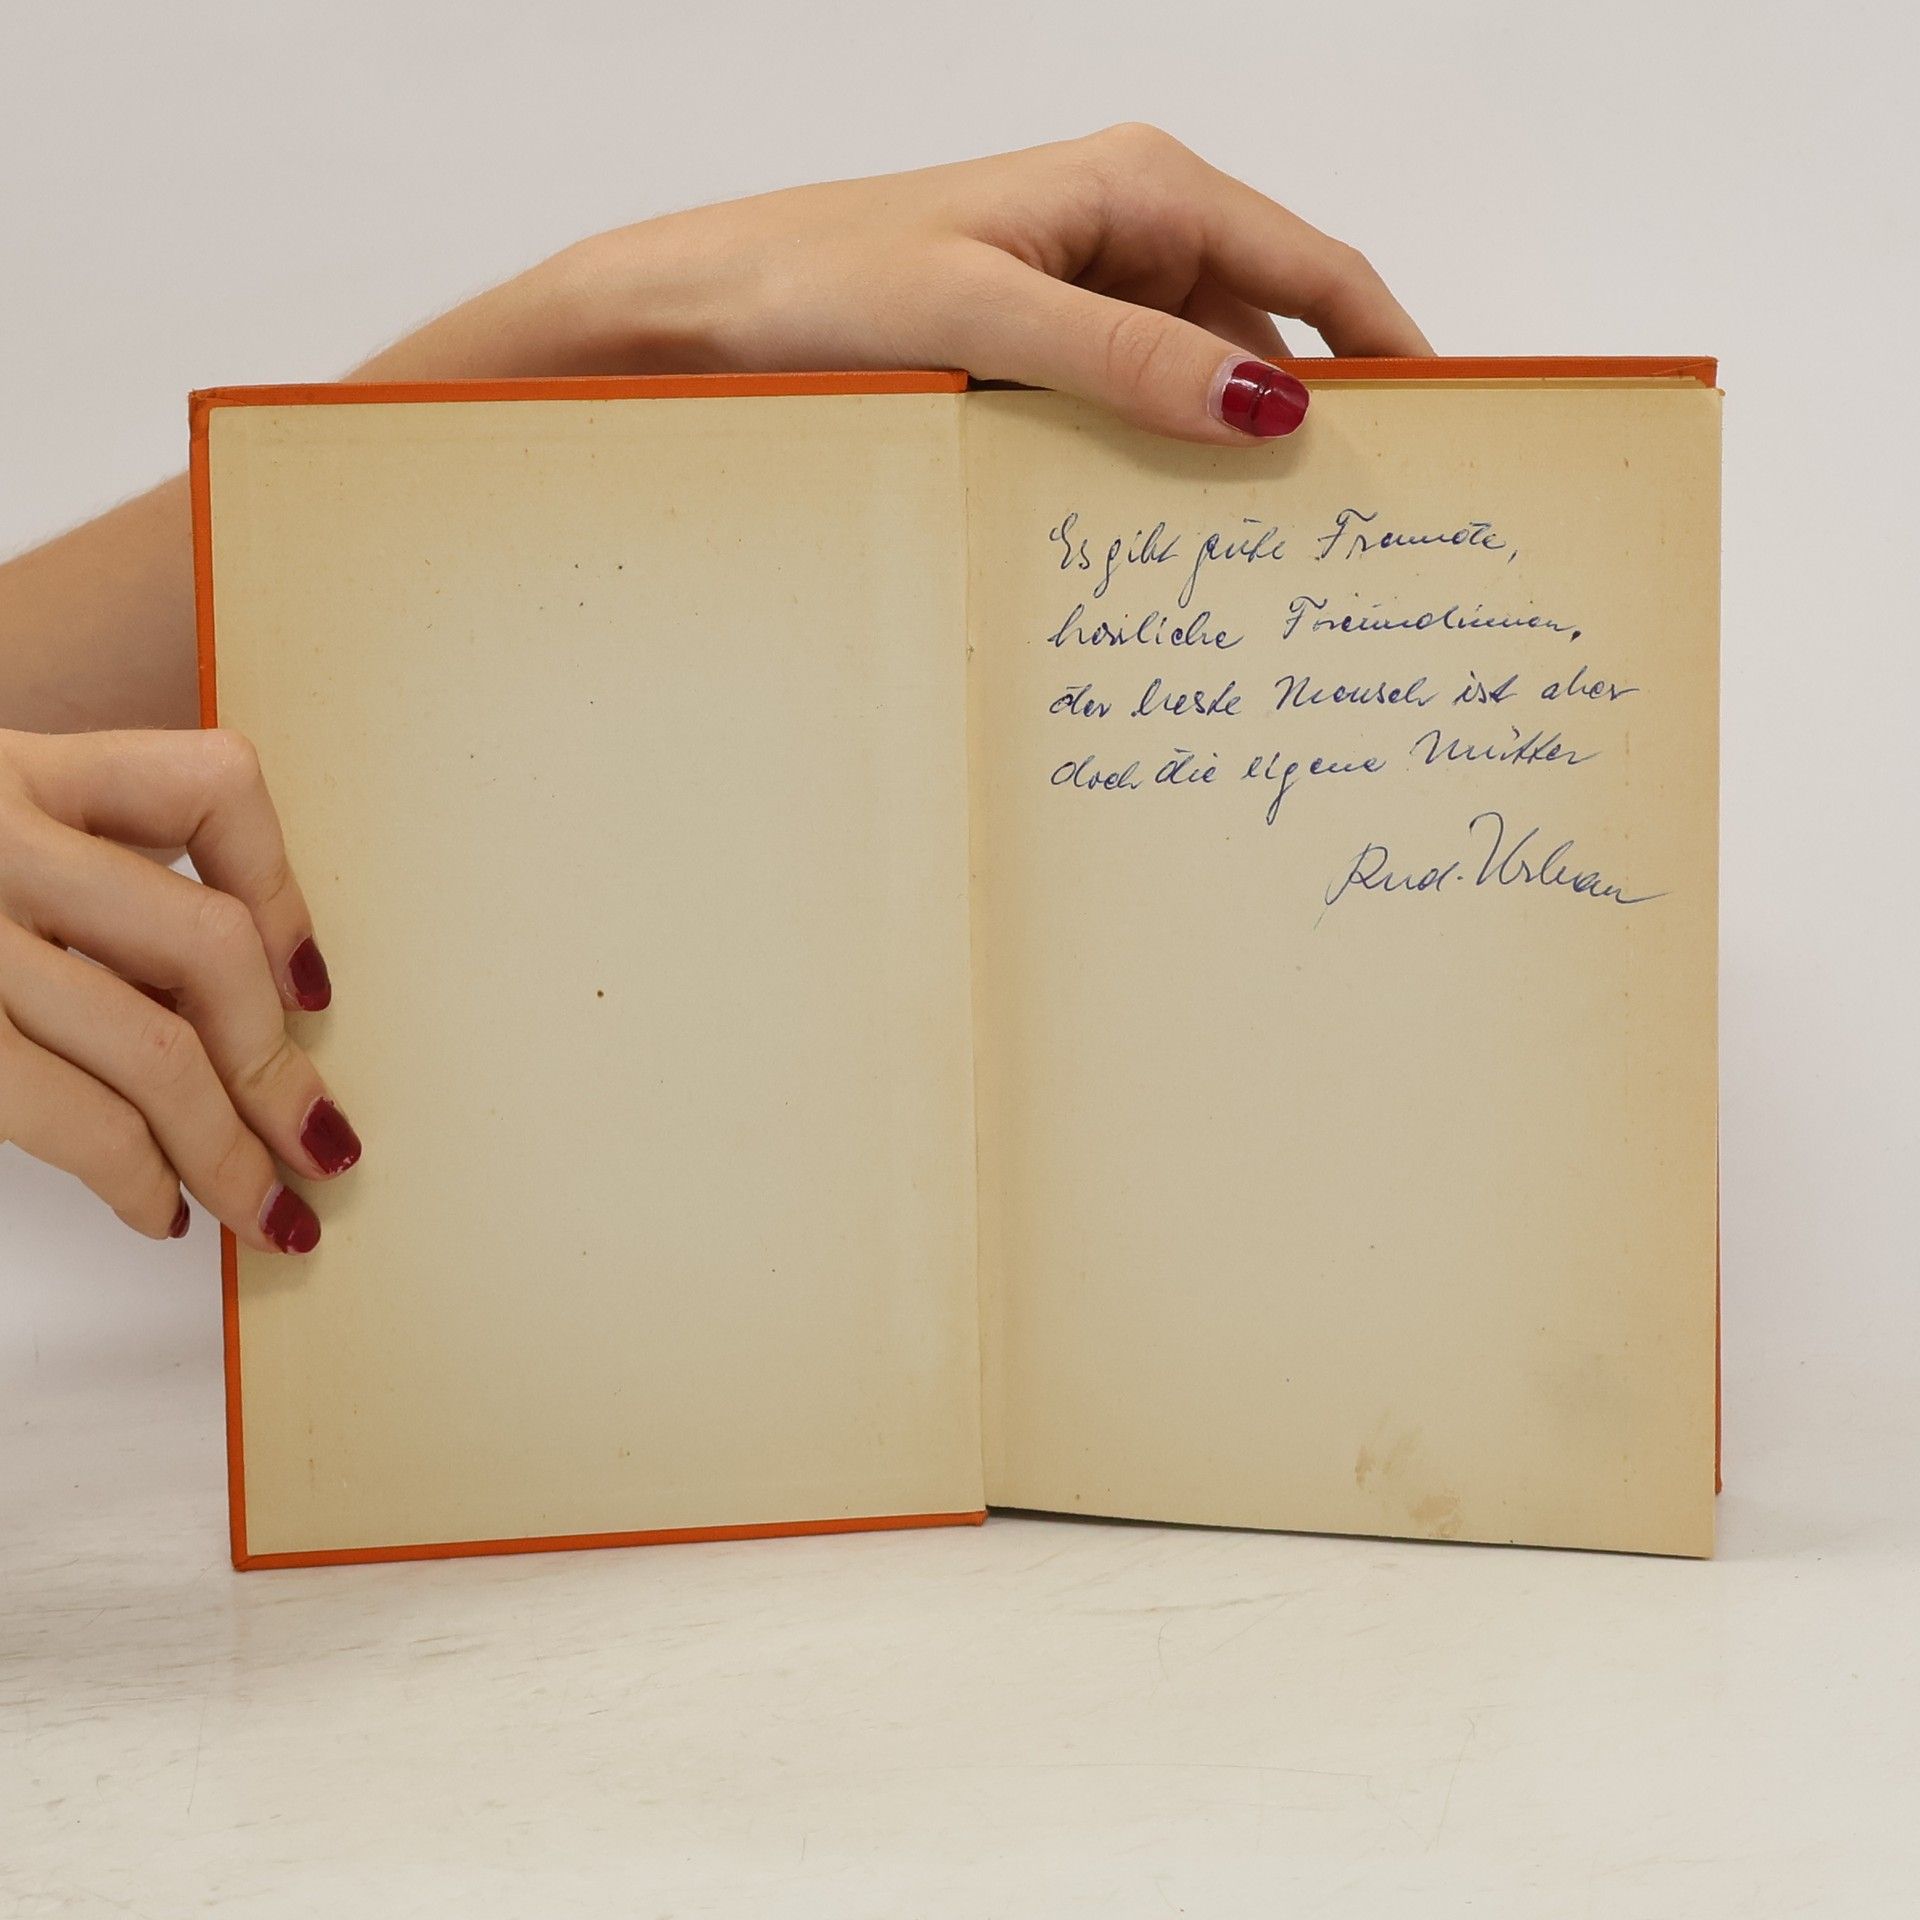 Es gibt gute Freunde,
herrliche Freundinnen,
der beste Mensch ist aber
doch die eigene Mutter
Rud. Urban